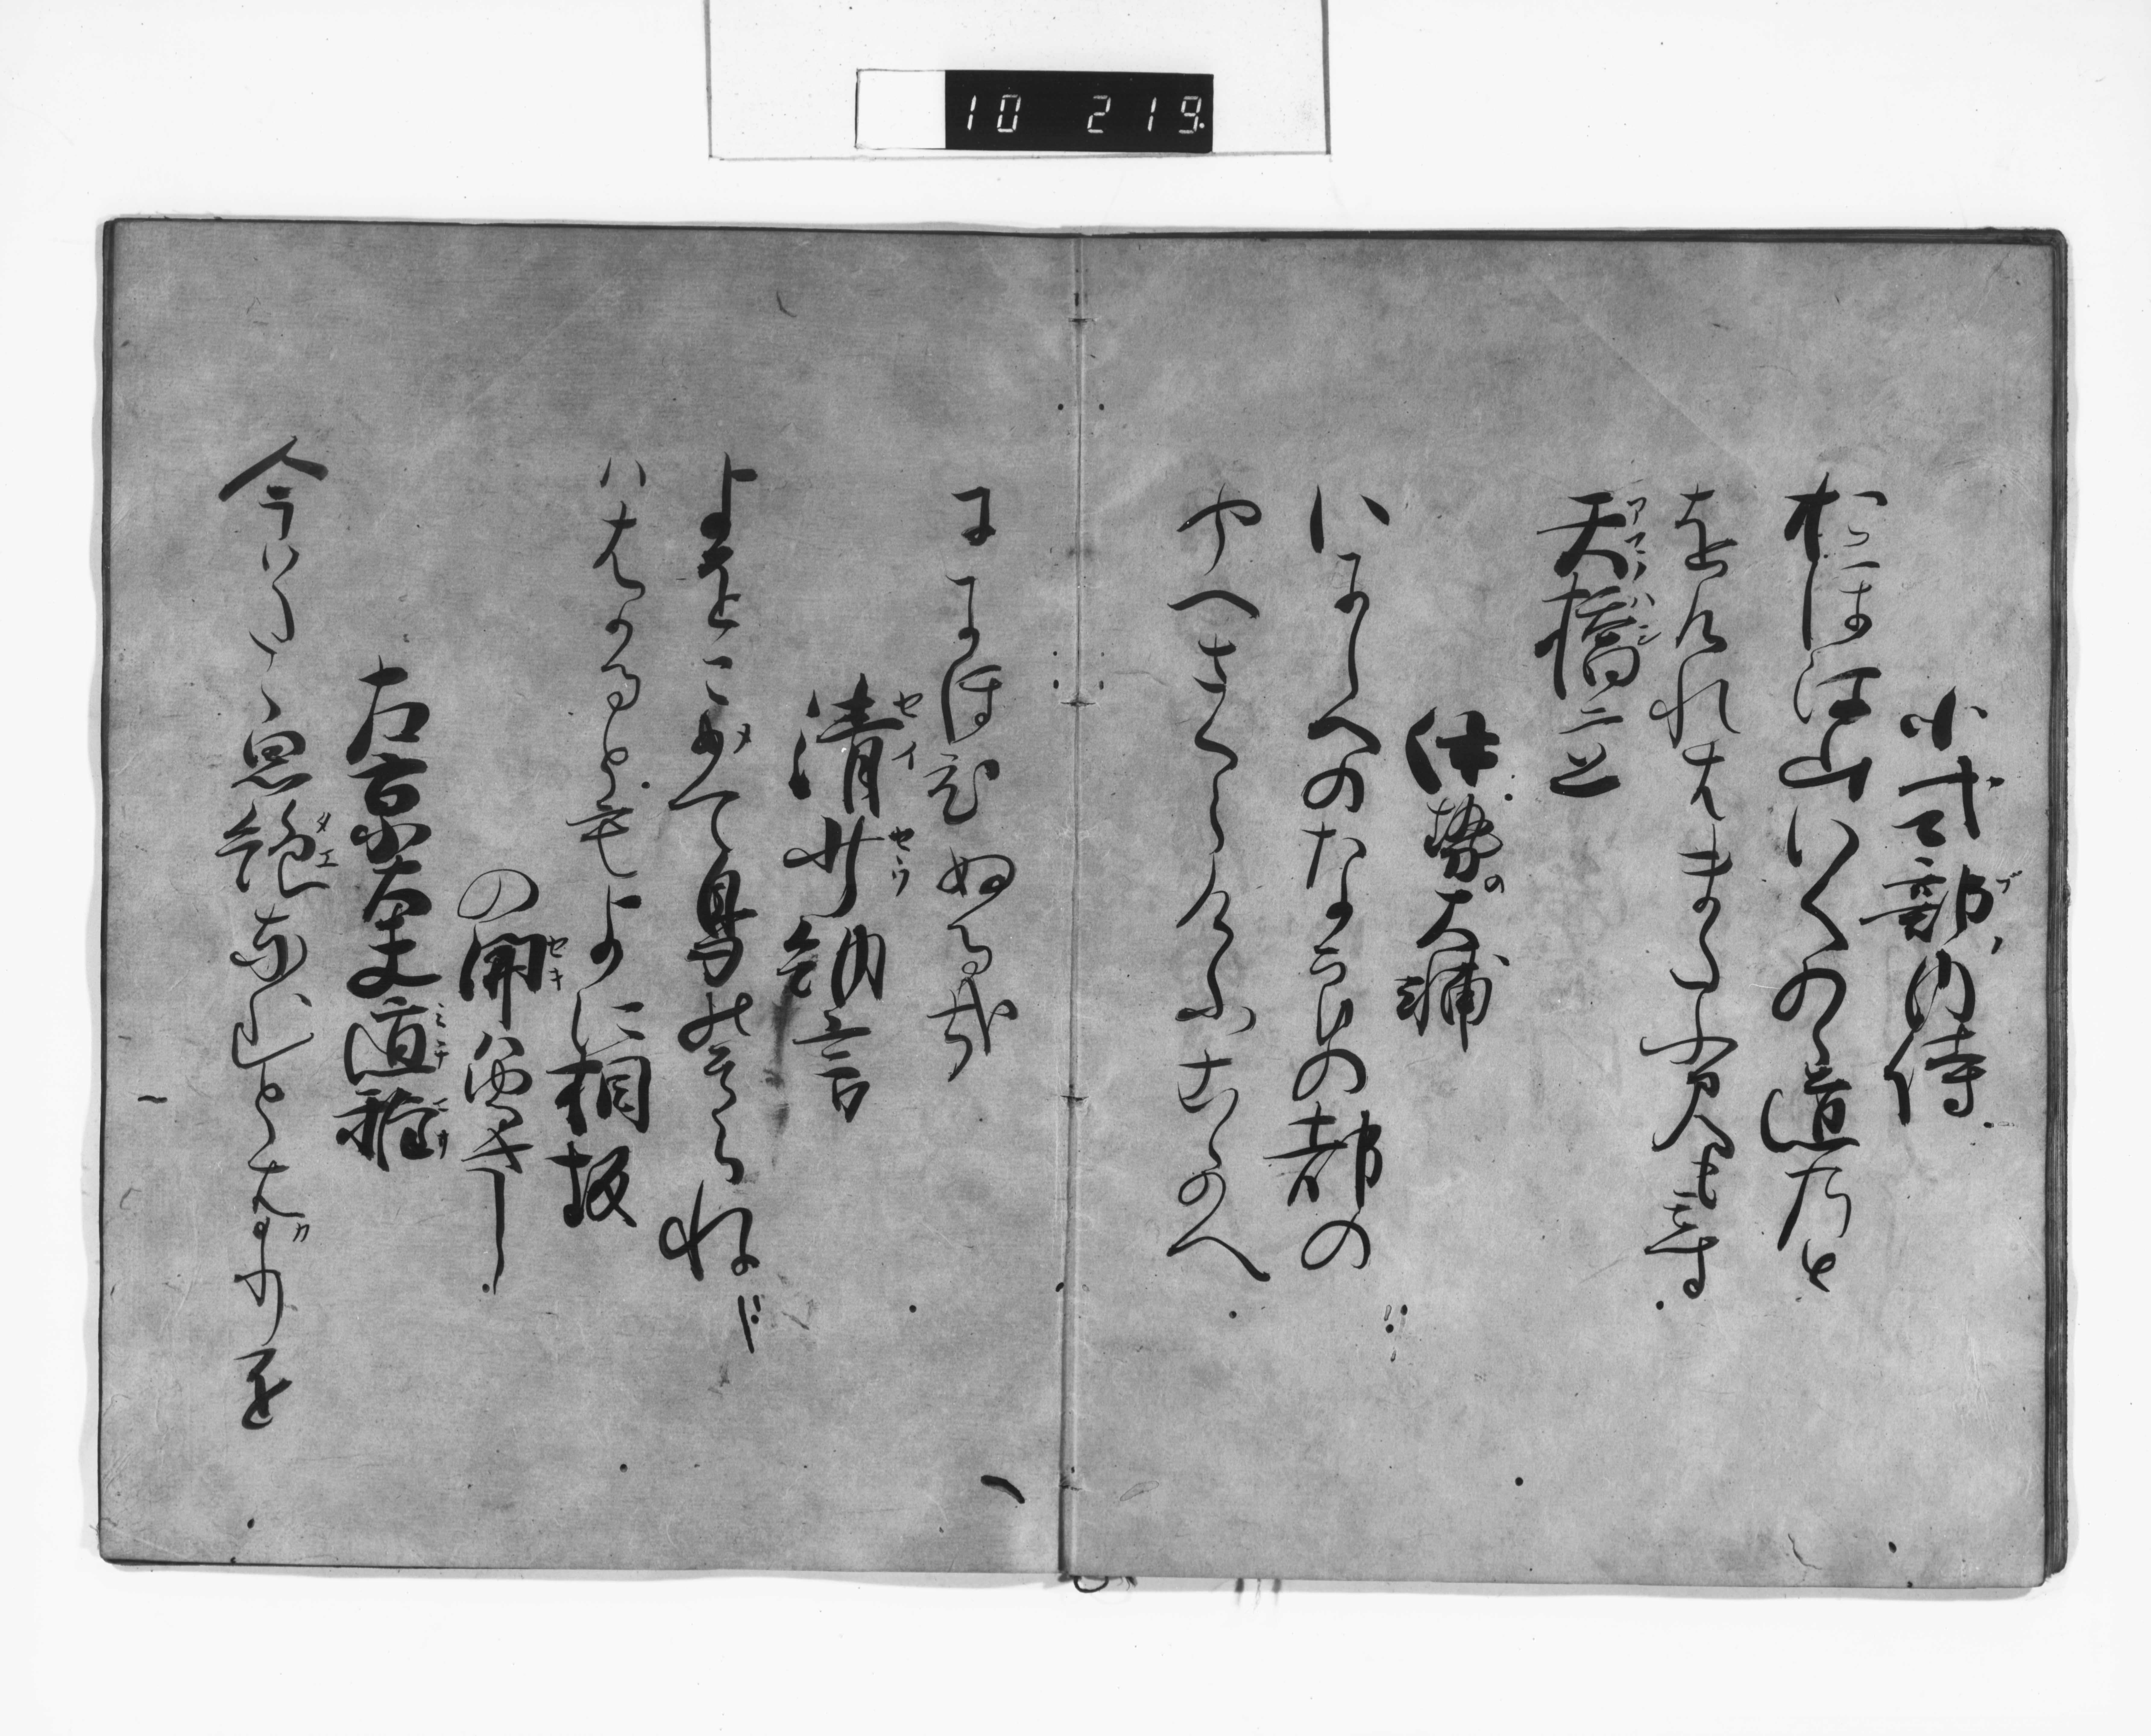 10 219
小式部内侍
おほえ山いくのゝ道のと
をけれはまたふみも
天橋立
伊勢の大輔
いにしへのならの都の
やへさくらけふこゝのへ
にゝほひぬる哉
清少納言
よをこめて鳥のそらねハ
ハはかるとも よに相坂
の関ハゆるさし
左京大夫道雅
今ハたゝ思絶なむとはかりを